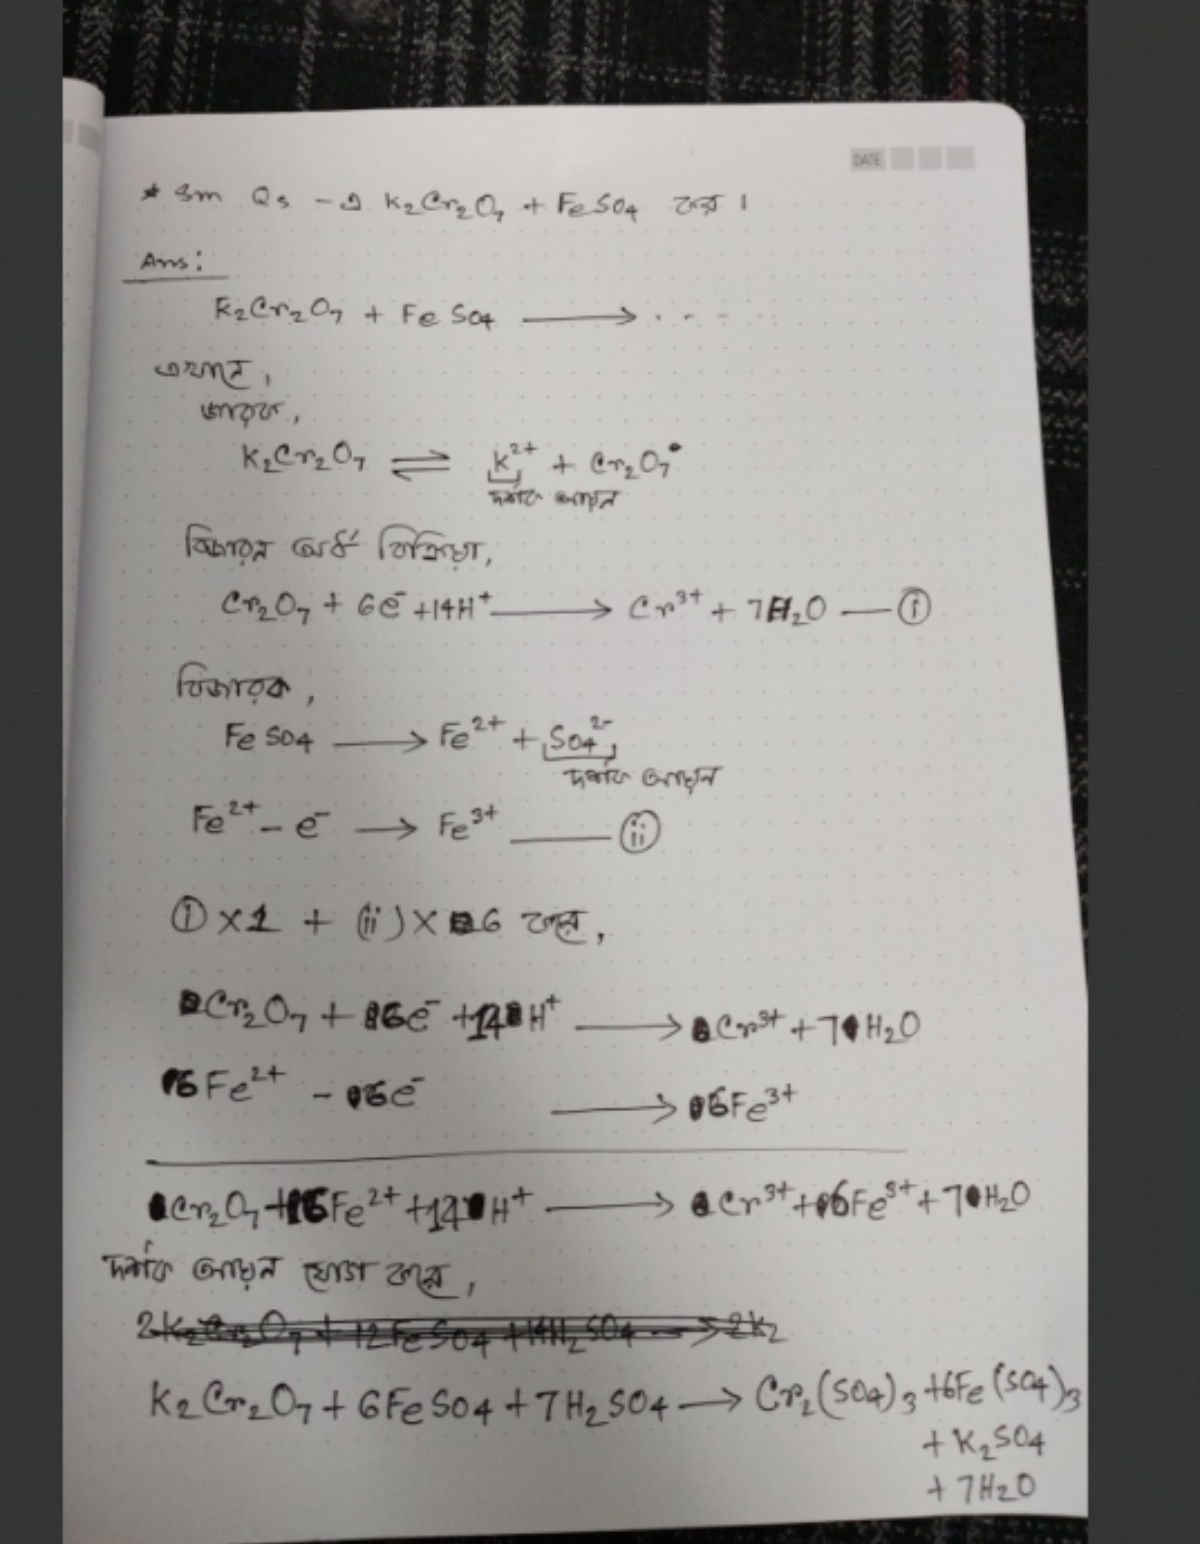 DATE
* Sm Qs - এ K₂Cr₂O₇ + FeSO₄ কর।
Ans:
K₂Cr₂O₇ + FeSO₄ ⟶ . . . .
এখানে,
জারক,
K₂Cr₂O₇ ⇌ K²⁺ + Cr₂O₇
দর্শক আয়ন
বিজারন অর্ধ বিক্রিয়া,
Cr₂O₇ + 6e⁻ + 14H⁺ ⟶ Cr³⁺ + 7H₂O — (i)
বিজারক,
FeSO₄ ⟶ Fe²⁺ + SO₄²⁻
দর্শক আয়ন
Fe²⁺ - e⁻ ⟶ Fe³⁺ — (ii)
(i) × 1 + (ii) × 6 করে,
Cr₂O₇ + 6e⁻ + 14H⁺ ⟶ Cr³⁺ + 7H₂O
6Fe²⁺ - 6e⁻ ⟶ 6Fe³⁺
Cr₂O₇ + 6Fe²⁺ + 14H⁺ ⟶ Cr³⁺ + 6Fe³⁺ + 7H₂O
দর্শক আয়ন যোগ করে,
2K₂Cr₂O₇ + 12FeSO₄ + 14H₂SO₄ ⟶ 2K₂
K₂Cr₂O₇ + 6FeSO₄ + 7H₂SO₄ ⟶ Cr₂(SO₄)₃ + 6Fe(SO₄)₃
+ K₂SO₄
+ 7H₂O